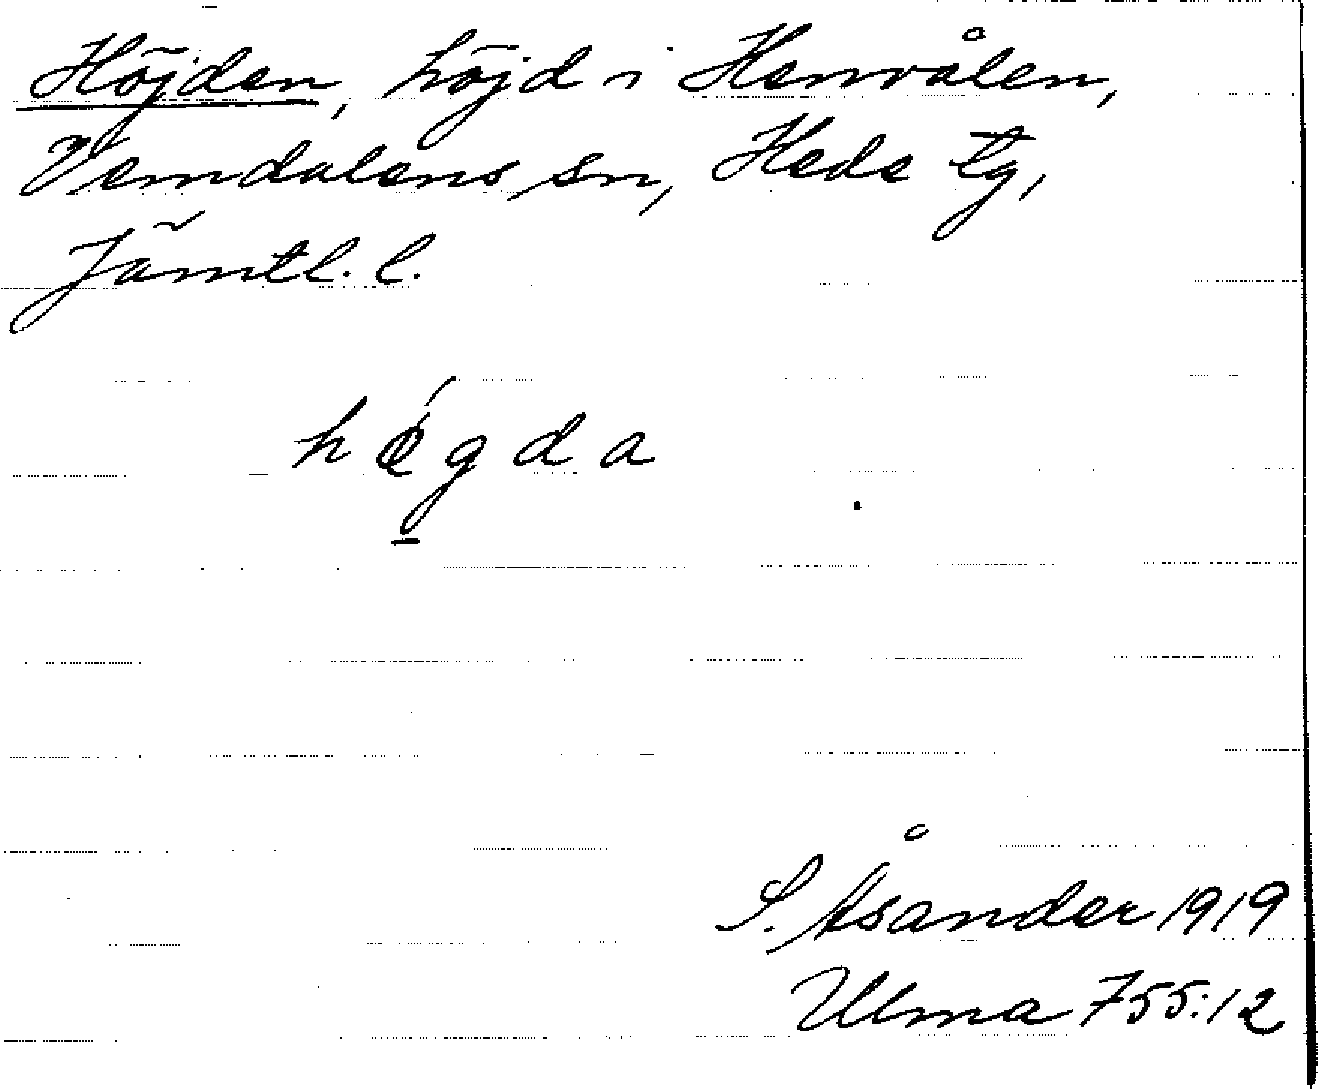 Höjden, höjd i Henvålen,
Vemdalens sn, Hede tg,
Jämtl. l.
hǿgda
S. Åsander 1919
Ulma 755:12